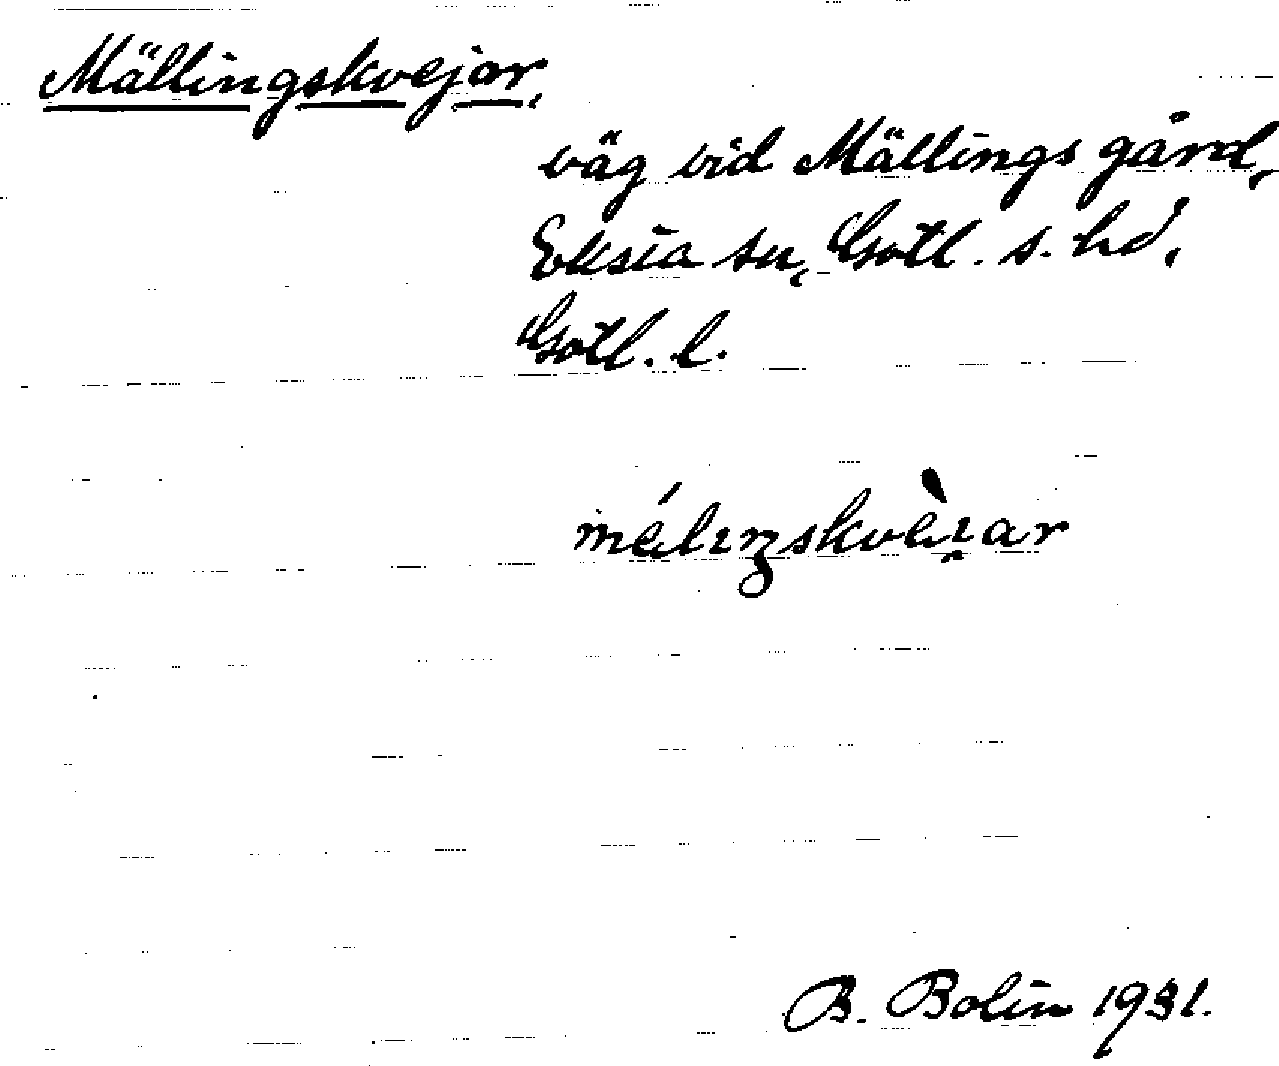 Mällingskvejar,
väg vid Mällings gård,
Eksta sn, Gotl. s. hd,
Gotl. l.
mélıŋskvèı̯ar
B. Bolin 1931.